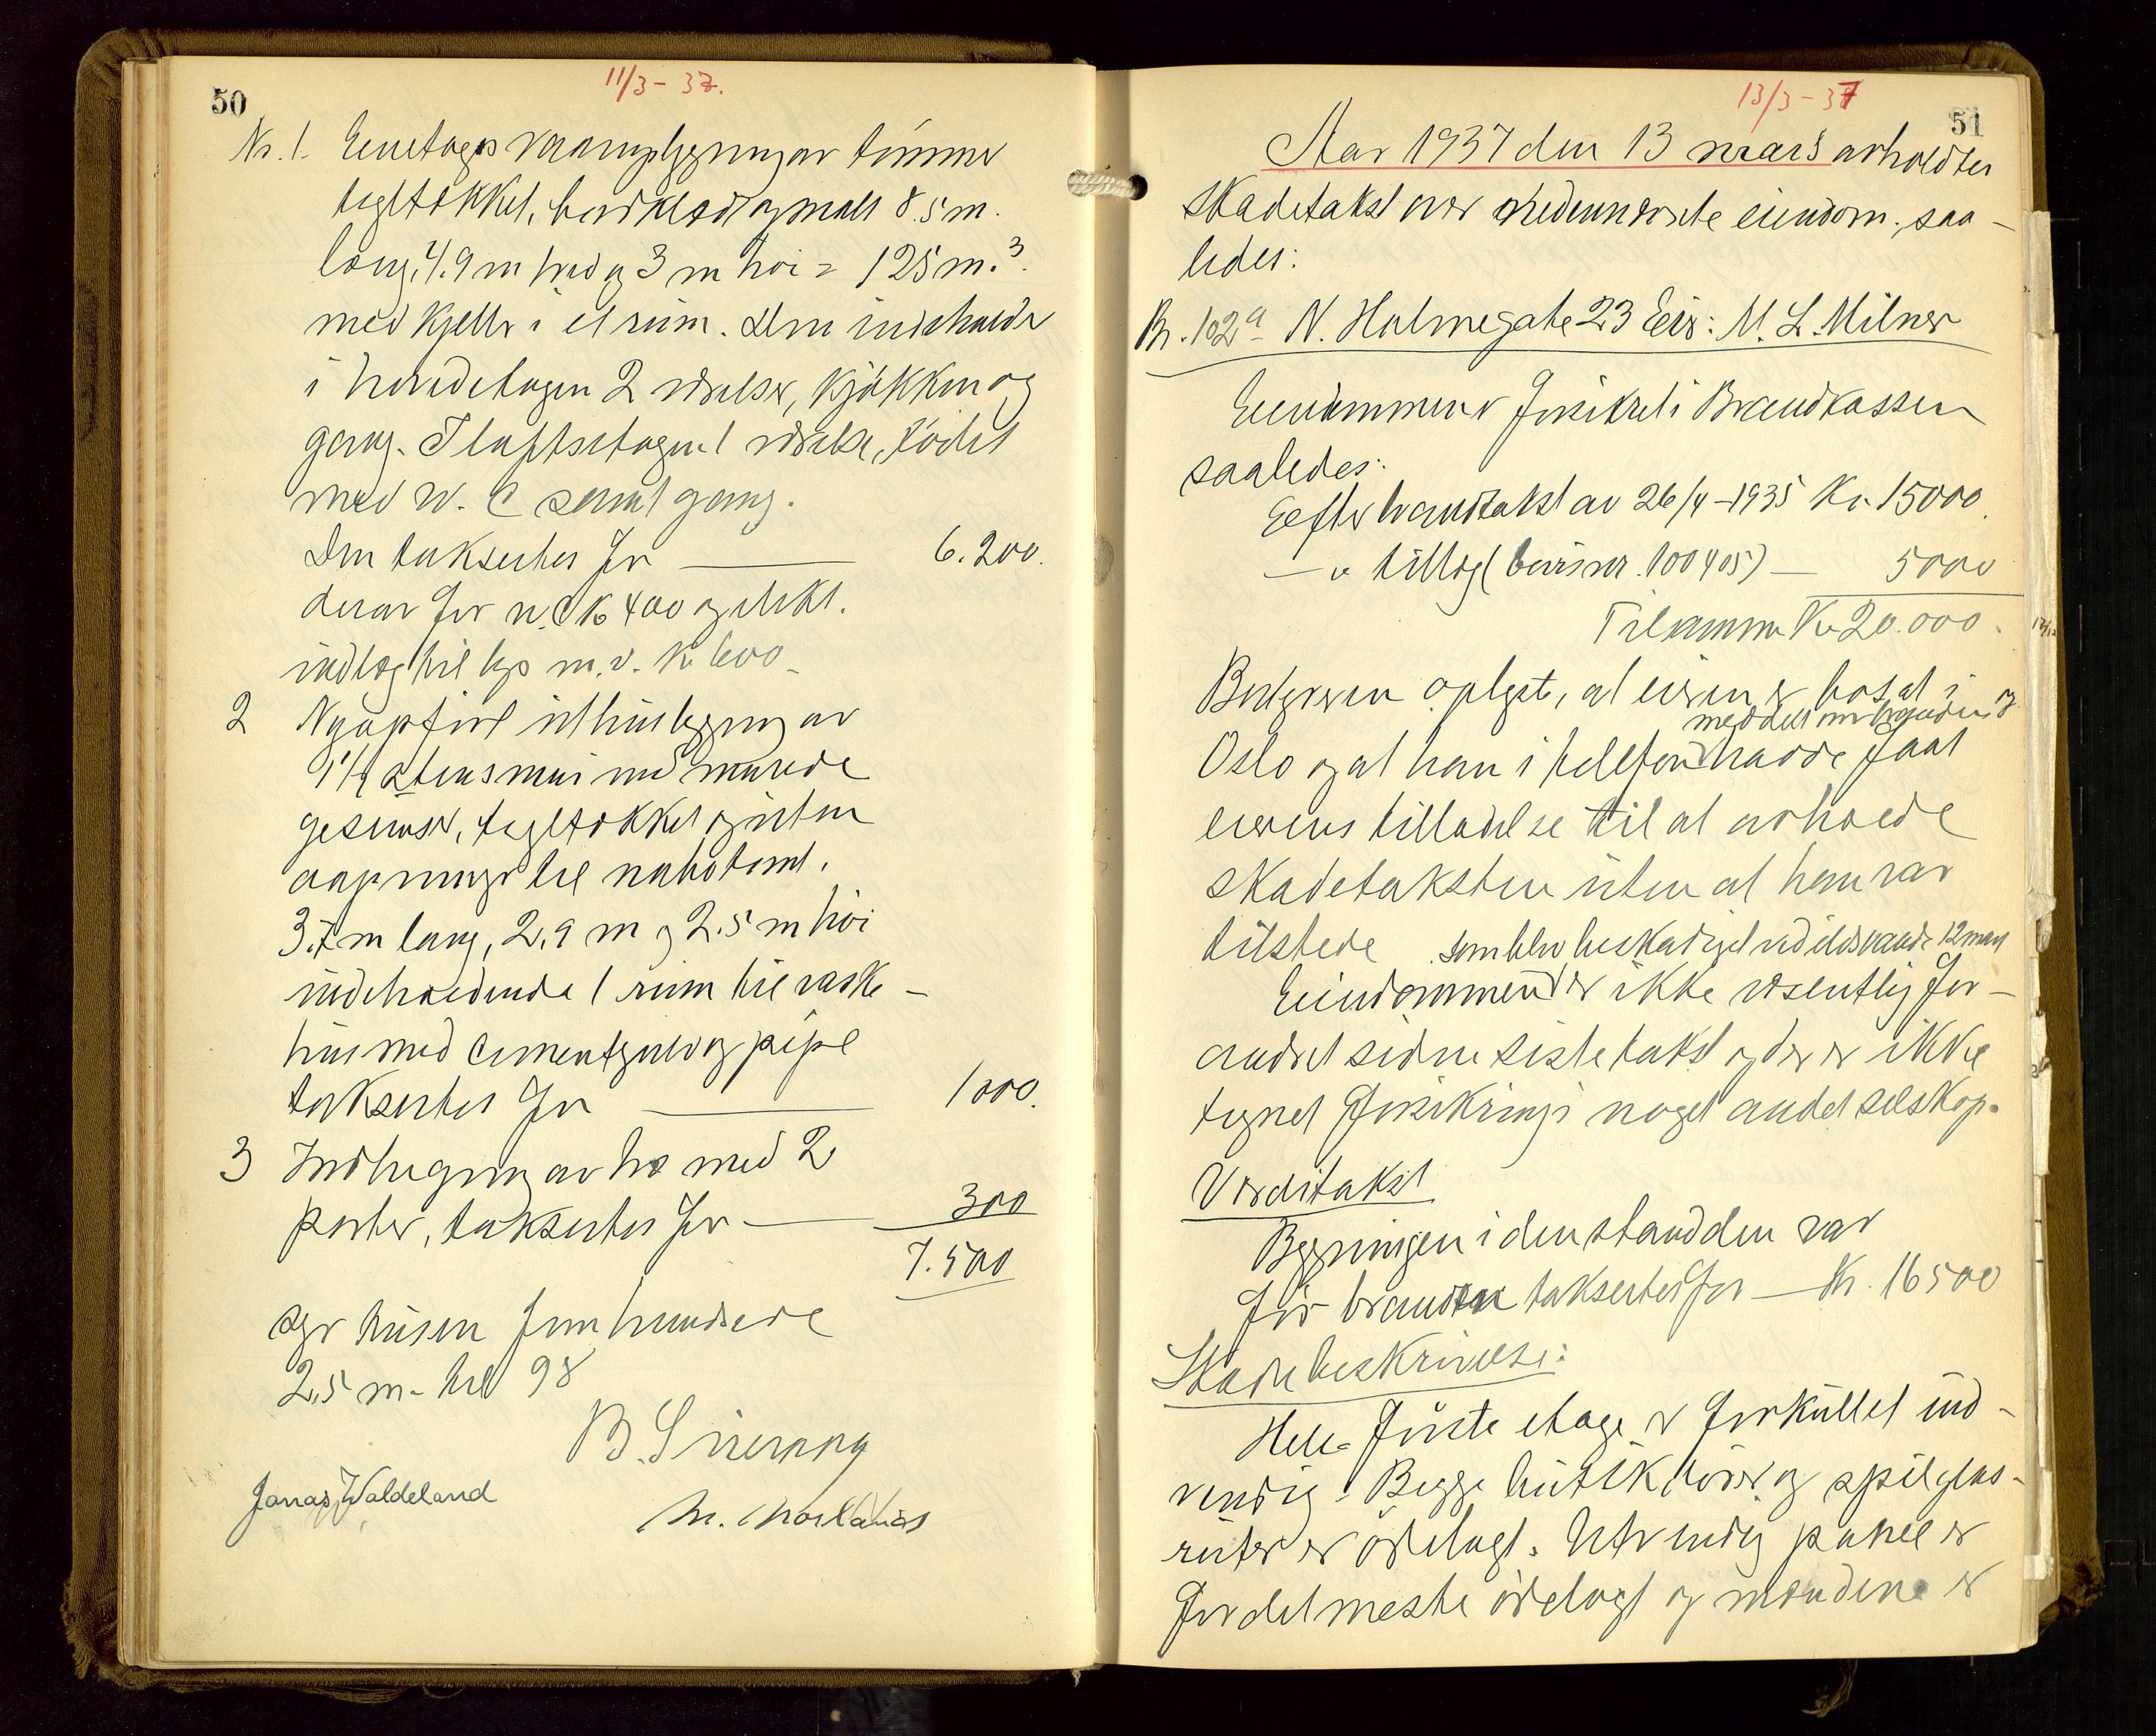 50
11/3-37.
Nr. 1. Eenetages vaaningsbygning av tømmer
tegltækket, bordklædt og malt 8.5 m.
lang, 4.9 m bred og 3 m høi = 125 m.³
med kjeller i et rum. Den indeholder
i hovedetagen 2 værelser, kjøkken og
gang. I loftsetagen 1 værelse,
med W. C samt gang.
Den takseres for — 6.200.
derav for w.c kr 400 og elekt.
indlæg til lys m.v. kr 600
2 Nyopført uthusbygning av
1/2 stens mur med murede
gesimser, tegltækket og uten
aapninger til nabotomt.
3.7 m lang, 2.9 m og 2.5 m høi
indeholdende 1 rum til vaske-
hus med cementgulv og pipe
takseres for — 1000.
3 Indhegning av træ med 2
porter, takseres for — 300
7.500
syv tusen fem hundrede
2.5 m- til 98
B. Sirevaag
Jonas Waldeland
51
13/3-37
Aar 1937 den 13 mars avholdtes
skadetakst over nedennævnte eiendom, saa-
ledes:
Br. 102a N. Holmegate 23 Eier: M. L. Milner
Eiendommen er forsikret i Brandkassen
saaledes:
Eefter brandtakst av 26/4-1935 Kr. 15000.
— " tillæg (bevis nr. 100405) — 5000
Tilsammen Kr 20.000.
Bestyreren oplyste, at eieren er bosat i
meddelt om branden og
Oslo og at han i telefon hadde faat
eierens tilladelse til at avholde
skadetaksten uten at han var
tilstede
som blev beskadiget ved ildsvaade 12 mars
Eiendommen er ikke væsentlig for-
andret siden siste takst og der er ikke
tegnet forsikring i noget andet selskap.
Værditakst
Bygningen i den stand den var
før branden takseres for — Kr. 16500
Skadebeskrivelse:
Hele første etage er forkullet ind-
vendig. Begge butikdører og speilglas-
ruter er ødelagt. Utvendig panel er
for det meste ødelagt og er